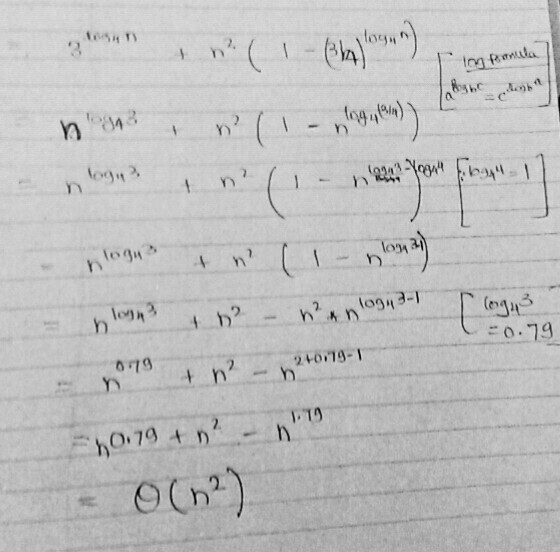 3^{log₄n} + n² ( 1 - (3/4)^{log₄n} ) [ log formula
a^{log_b c} = c^{log_b a} ]
= n^{log₄3} + n² ( 1 - n^{log₄(3/4)} )
= n^{log₄3} + n² ( 1 - n^{log₄3 - log₄4} ) [ ∵ log₄4 = 1 ]
= n^{log₄3} + n² ( 1 - n^{log₄3-1} )
= n^{log₄3} + n² - n² * n^{log₄3-1} [ log₄3
= 0.79
= n^{0.79} + n² - n^{2+0.79-1}
= n^{0.79} + n² - n^{1.79}
= Θ(n²)